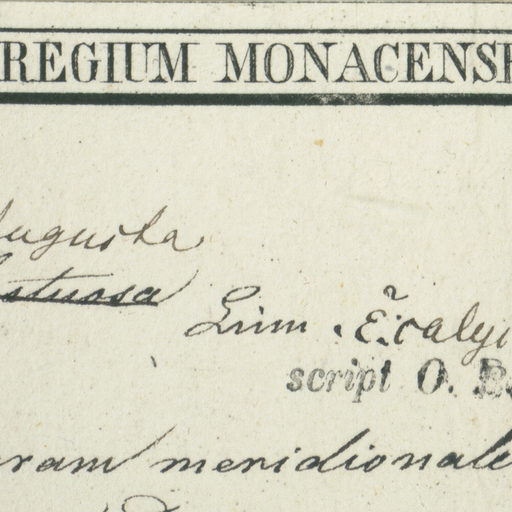 REGIUM MONACENSE
augusta
tuosa
Linn. E calyc
script O. B.
ram meridionale